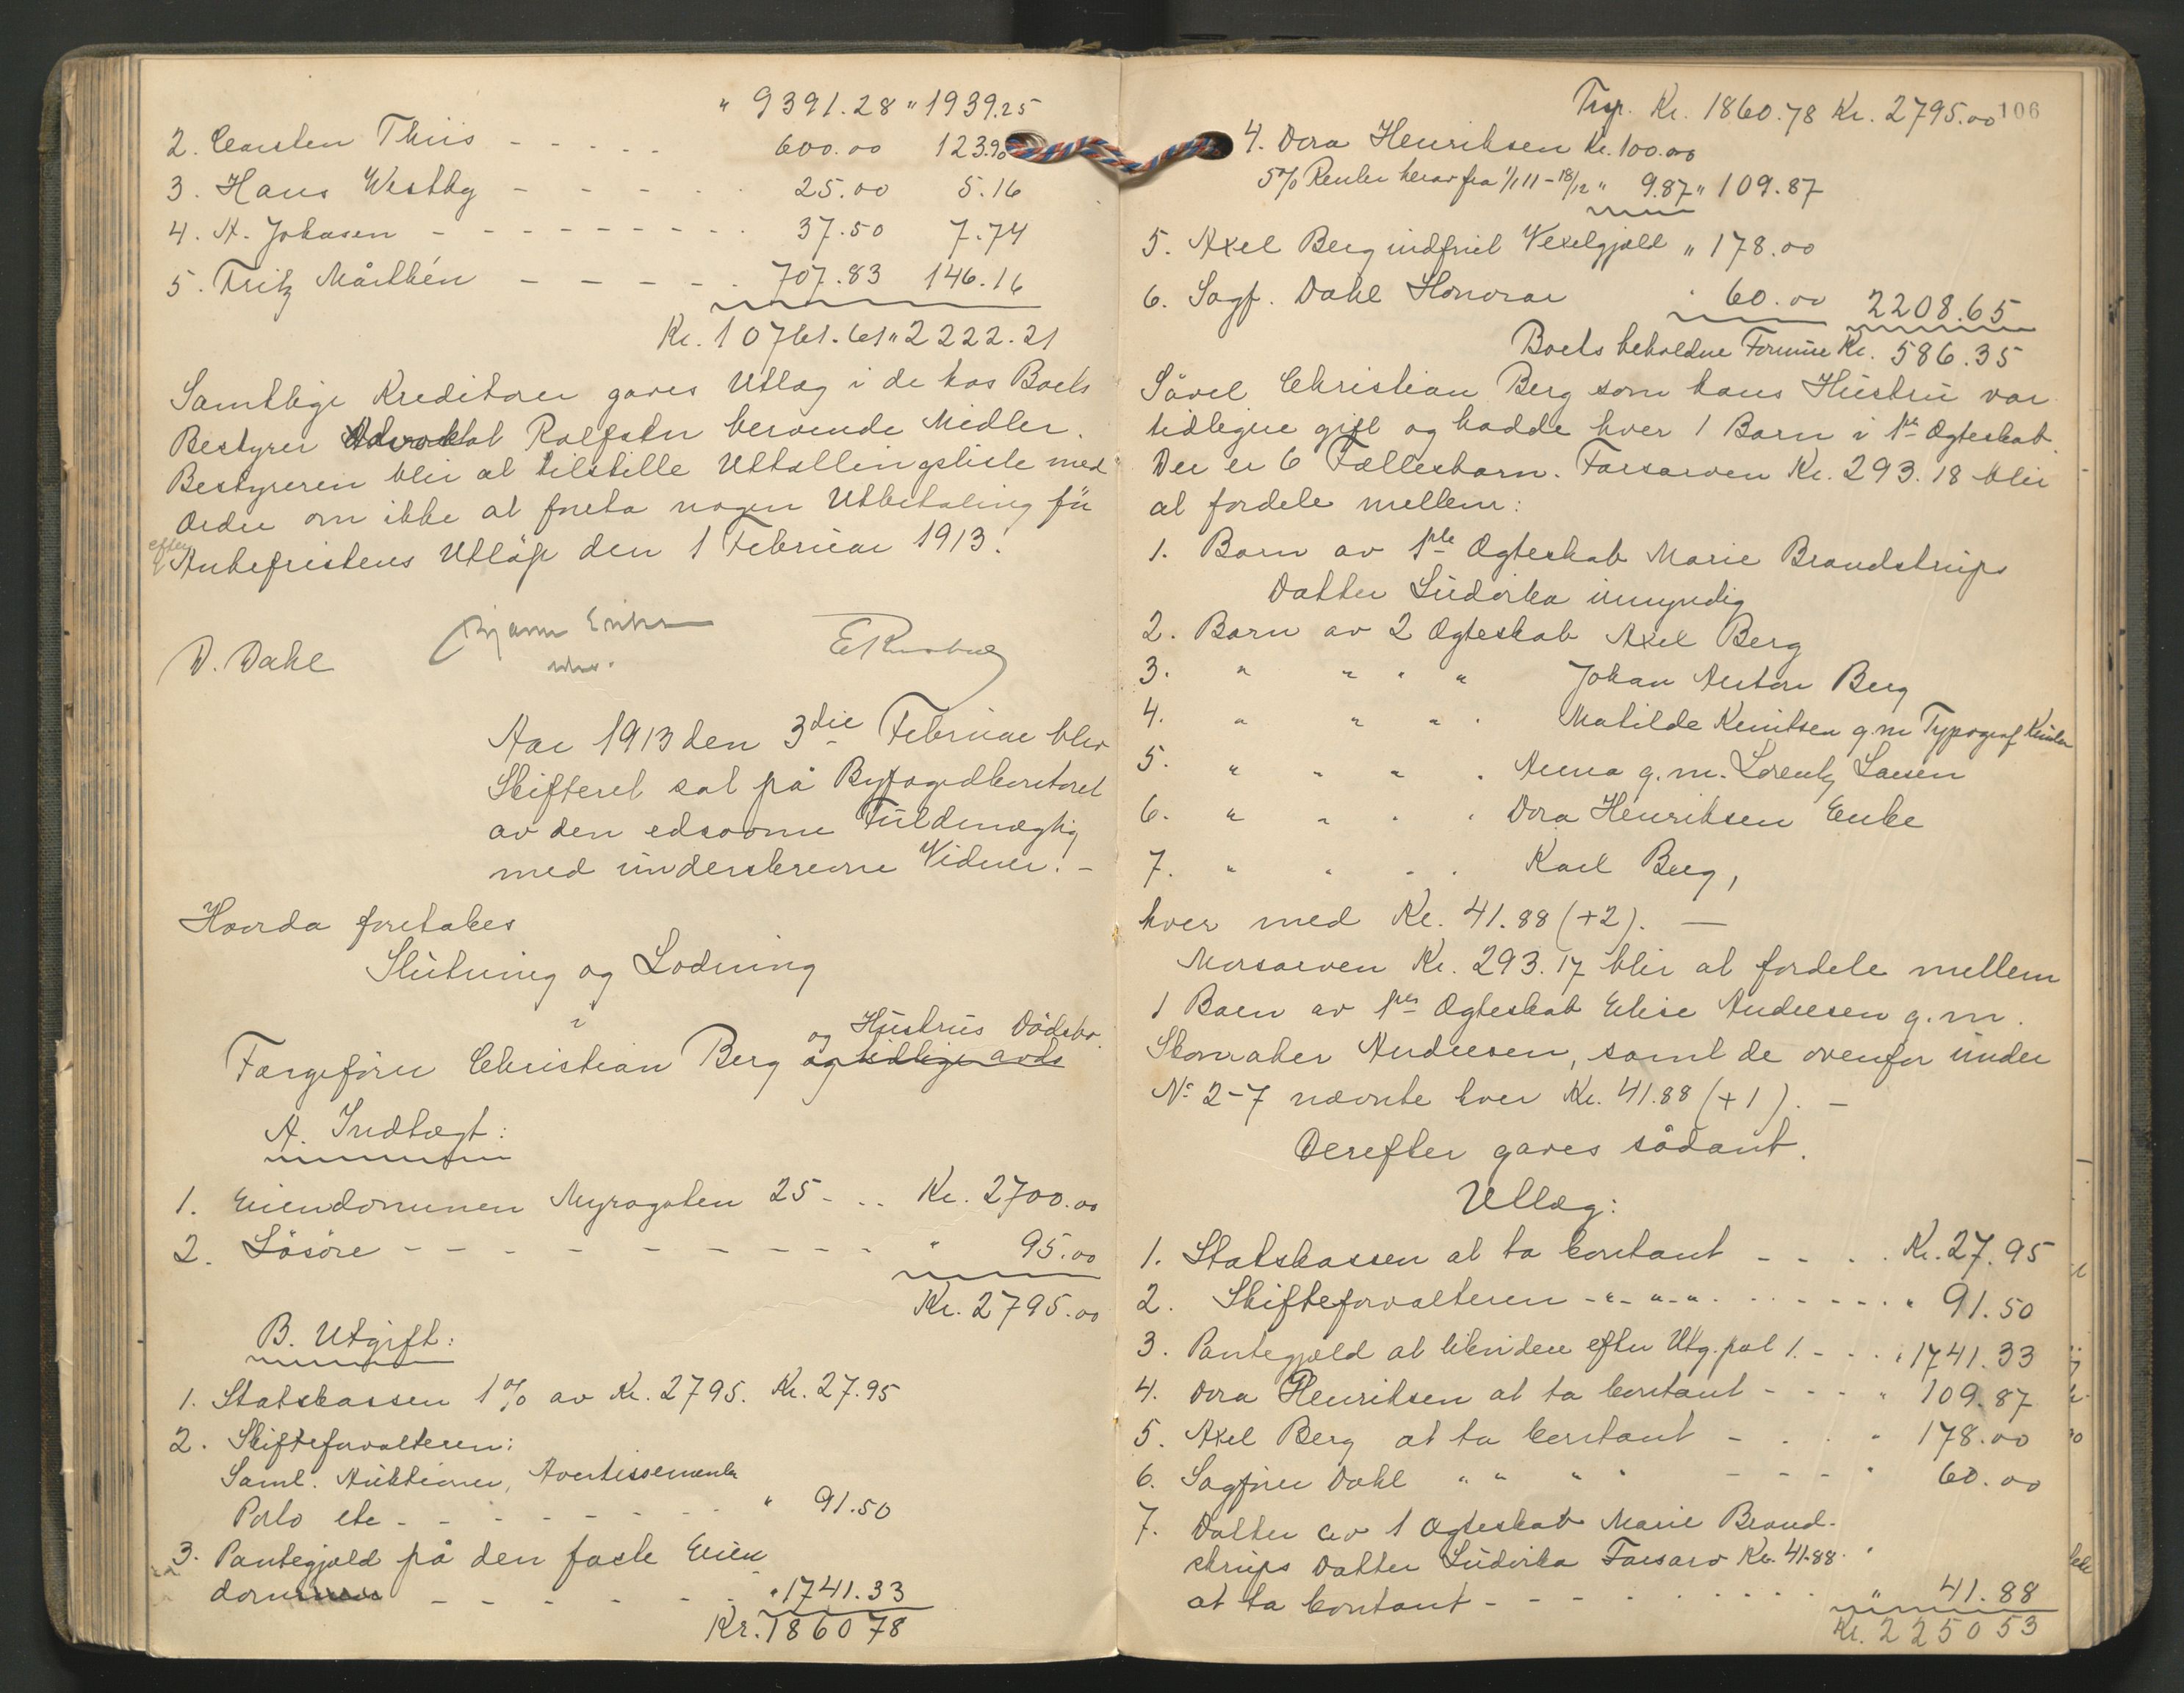 " 9391.28 " 1939.25
2. Carsten Thiis - - - - - 600.00 123.90
3. Hans Westby - - - - - 25.00 5.16
4. A. Johasen - - - - - - - - - 37.50 7.74
5. Fritz Mårthén - - - - - 707.83 146.16
Kr. 10761.61 " 2222.21
Samtlige Kreditorer gaves Utlæg i de hos Boets
Bestyrer Rolfsen beroende Midler.
Bestyreren blir at tilstille Uttællingsliste med
Ordre om ikke at foreta nogen Utbetaling før
efter Ankefristens Utløp den 1 Februar 1913.
D. Dahl
Aar 1913 den 3die Februar blev
Skifteret sat på Byfogedkontoret
av den edsvorne Fuldmægtig
med underskrevne Vidner. -
Hvorda foretakes
Slutning og Lodning
i
og Hustrus Dødsbo.
Færgefører Christian Berg og tidlige avd.
A. Indtægt:
1. Eiendommen Myragaten 25 - .. Kr. 2700.00
2. Løsøre - - - - - - - - - - " 95.00
Kr. 2795.00
B. Utgift:
1. Statskassen 1% av Kr. 2795. Kr. 27.95
2. Skifteforvalteren:
Saml. Auktioner, Avertissements
Porto etc - - - - - - - " 91.50
3. Pantegjæld på den faste Eien
dommen - - - - - - " 1741.33
Kr. 1860 78
Trsp. Kr. 1860.78 Kr. 2795.00 106
4. Dora Henriksen Kr. 100.00
5% Renter herav fra 1/1 11 - 18/12 " 9.87 " 109.87
5. Axel Berg indfriet Vexelgjæld " 178.00
6. Sagf. Dahl Honorar " 60.00 2208.65
Boets beholdne Formue Kr. 586.35
Såvel Christian Berg som hans Hustru var
tidligere gift og hadde hver 1 Barn i 1ste Ægteskab.
Der er 6 Fællesbarn. Farsarven Kr. 293.18 blir
at fordele mellem:
1. Barn av 1ste Ægteskab Marie Brandstrups
Datter Ludovika umyndig
2. Barn av 2 Ægteskab Axel Berg
3. " " " " Johan Anton Berg
4. " " " " Matilde Knutsen g.m Typograf Knutsen
5. " " " " Anna g.m. Lorentz Larsen
6. " " " " Dora Henriksen Enke
7. " " " " Karl Berg,
hver med Kr. 41.88 (+2). -
Morsarven Kr. 293.17 blir at fordele mellem
1 Barn av 1ste Ægteskab Elise Andresen g.m.
Skomaker Andresen, samt de ovenfor under
No 2-7 nævnte hver Kr. 41.88 (+1). -
Derefter gaves sådant.
Utlæg:
1. Statskassen at ta kontant - - - . Kr. 27.95
2. Skifteforvalteren - " - " - " - - - - - " 91.50
3. Pantegjæld at likvidere efter Utg. pot 1. - - " 1741.33
4. Dora Henriksen at ta kontant - - - " 109.87
5. Axel Berg at ta kontant - - - " 178.00
6. Sagfører Dahl " " " " - - - " 60.00
7. Datter av 1 Ægteskab Marie Brand-
strups Datter Ludovika Farsarv Kr. 41.88.
at ta kontant - - - - - - " 41.88
Kr. 2250 53